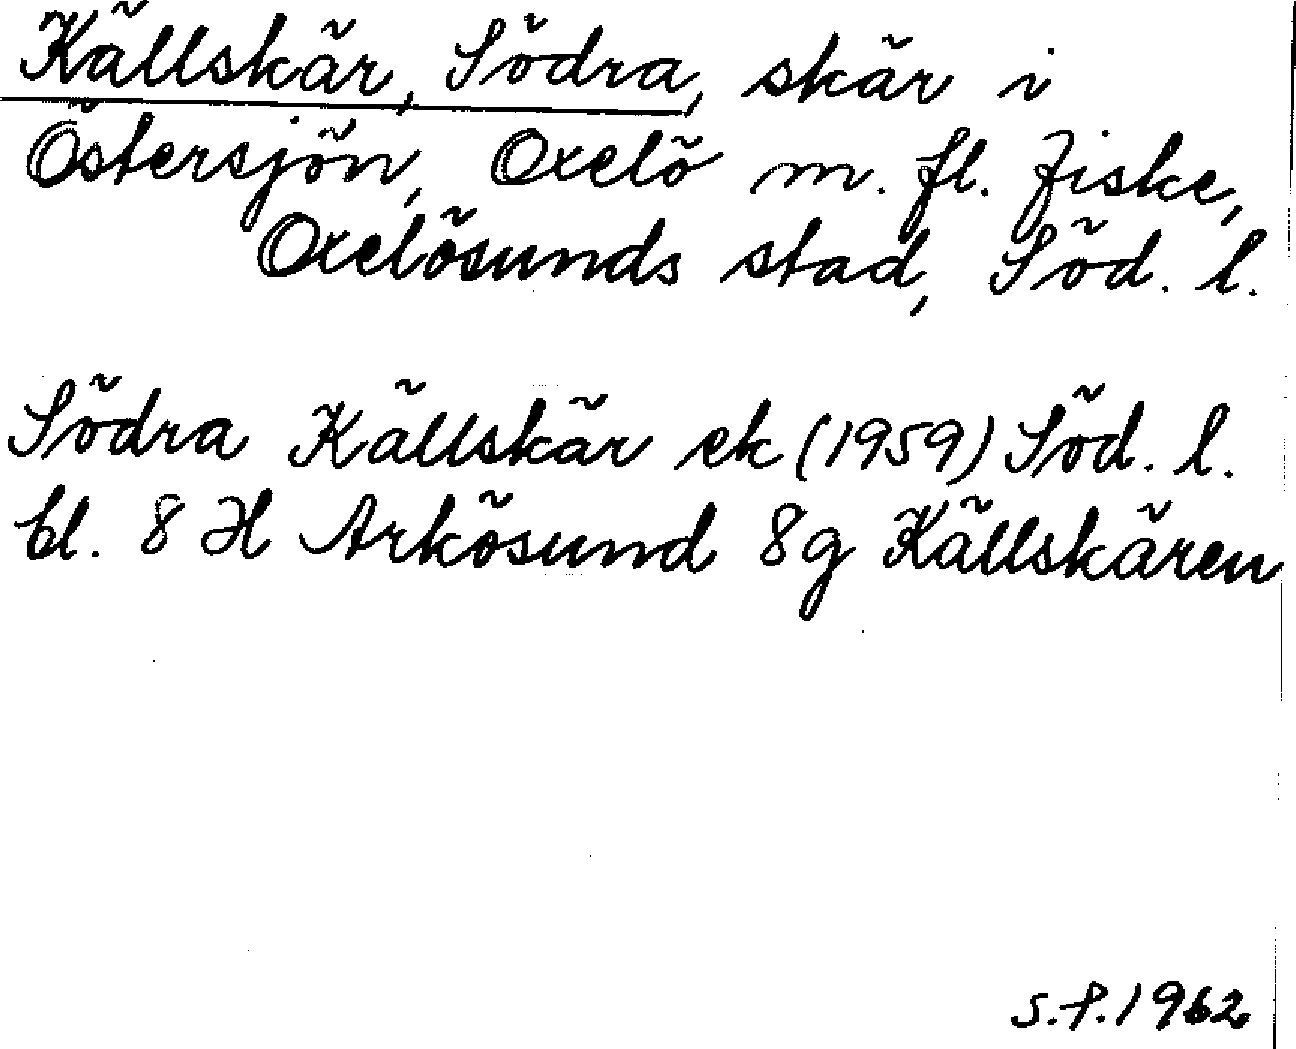 Källskär, Södra, skär i
Östersjön, Oxelö m. fl. Fiske,
Oxelösunds stad, Söd. l.
Södra Källskär ek (1959) Söd. l.
bl. 8 H Arkösund 8g Källskären
S.P. 1962